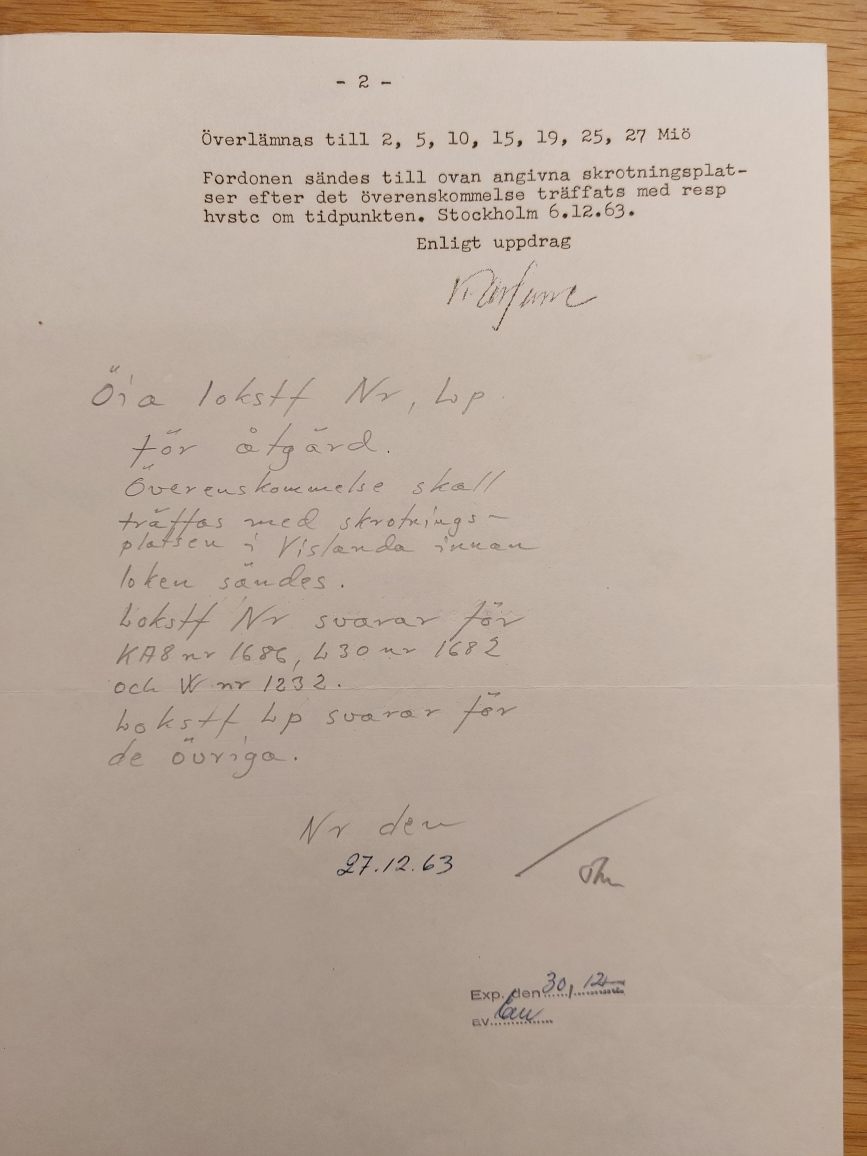 - 2 -
Överlämnas till 2, 5, 10, 15, 19, 25, 27 Miö
Fordonen sändes till ovan angivna skrotningsplat-
ser efter det överenskommelse träffats med resp
hvstc om tidpunkten. Stockholm 6.12.63.
Enligt uppdrag
Öia lokstf Nr, Lp
för åtgärd.
Överenskommelse skall
träffas med skrotnings-
platsen i Vislanda innan
loken sändes.
Lokstf Nr svarar för
KA8 nr 1686, L30 nr 1682
och W nr 1232.
Lokstf Lp svarar för
de övriga.
Nr den
27.12.63
Exp. den 30, 12
av